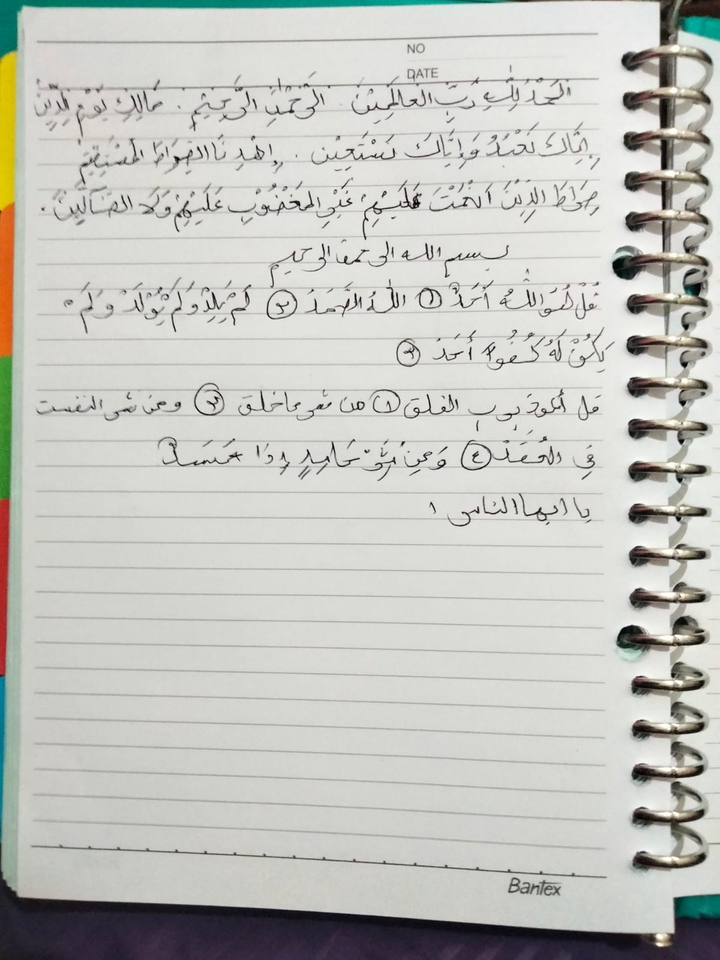 NO
DATE
الحَمْدُ لِلّٰهِ رَبِّ العَالَمِيْنَ . الرَّحْمٰنِ الرَّحِيْمِ . مَالِكِ يَوْمِ الدِّيْنِ
إِيَّاكَ نَعْبُدُ وَإِيَّاكَ نَسْتَعِيْن . إِهْدِنَا الصِّرَاطَ المُسْتَقِيْمَ
صِرَاطَ الَّذِيْنَ أَنْعَمْتَ عَلَيْهِمْ غَيْرِ المَغْضُوْبِ عَلَيْهِمْ وَلَا الضَّآلِيْنَ .
بسم الله الرحمن الرحيم
قُلْ هُوَ اللّٰهُ أَحَدٌ ١ اللّٰهُ الصَّمَدُ ٢ لَمْ يَلِدْ وَلَمْ يُوْلَدْ وَلَمْ
يَكُنْ لَهُ كُفُوًا أَحَدٌ
قل أعوذ برب الفلق ١ من شر ما خلق ومن شر النفست
فِي العُقَدْ ٤ وَمِنْ شَرِّ حَاسِدٍ إِذَا حَسَدَ
يا ايها الناس ١
Bantex